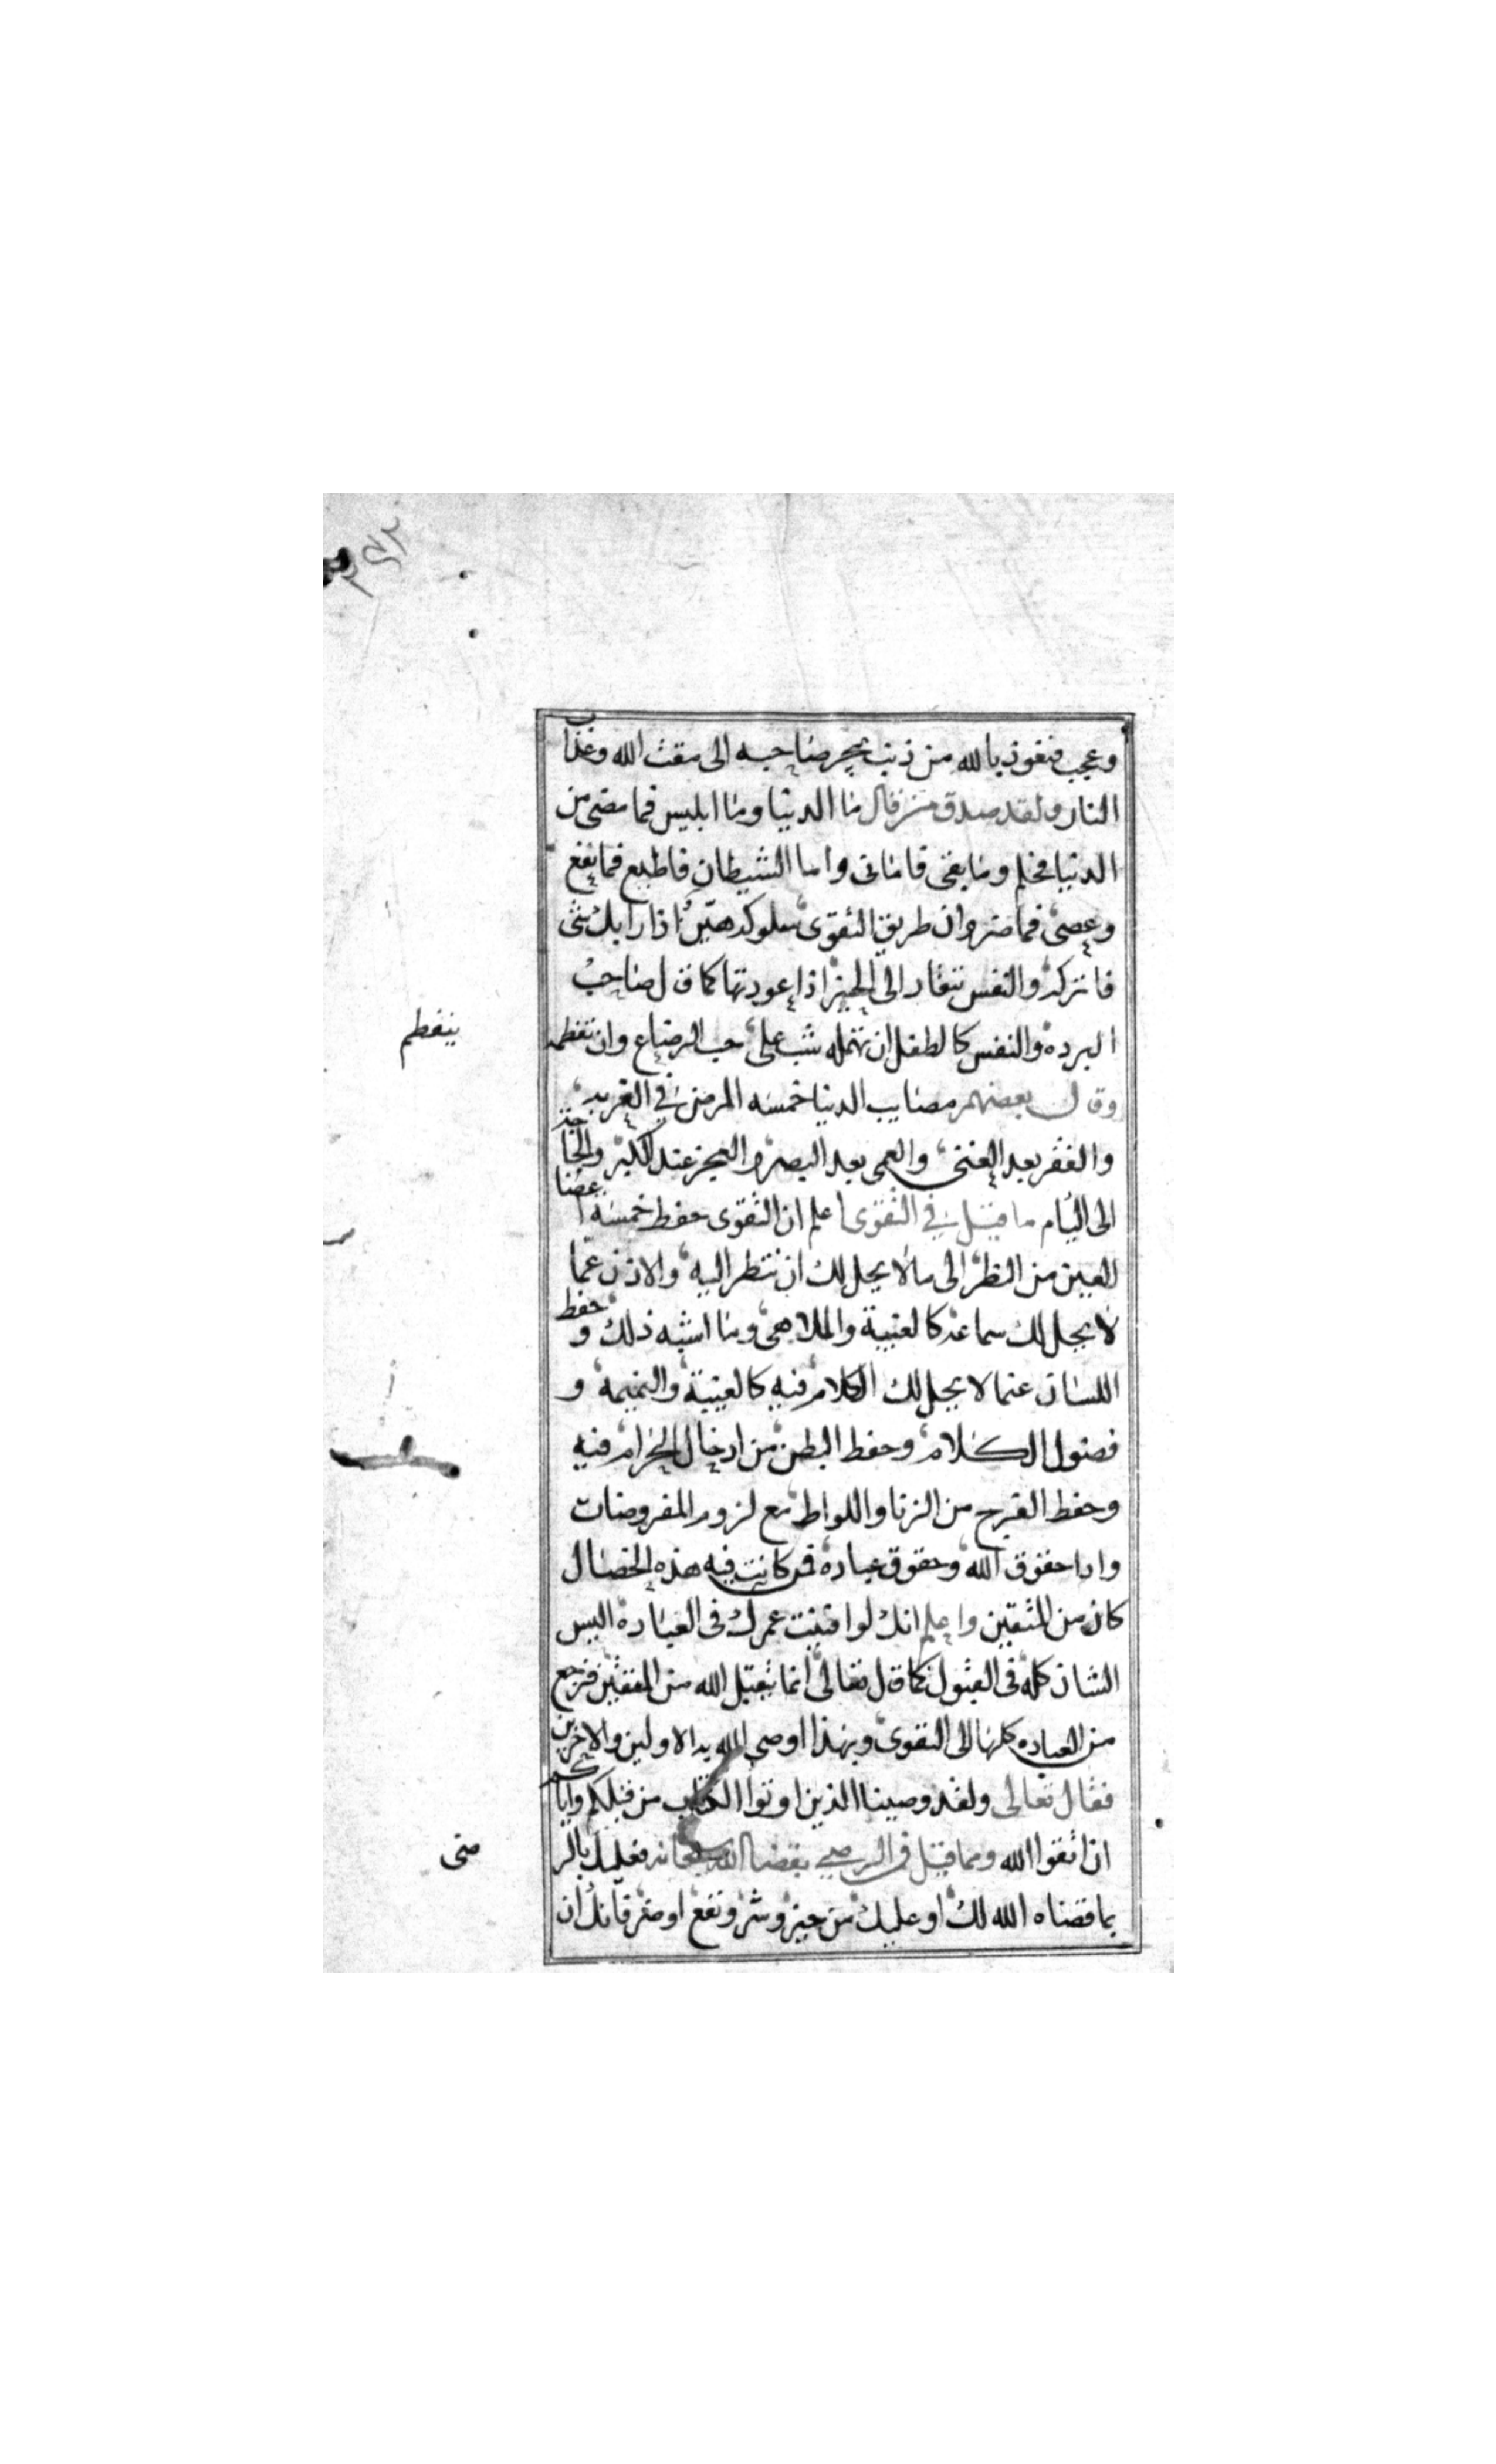 وعجب فنعوذ بالله من ذنب يجر صاحبه الى مقت الله وعذاب
النار ولقد صدق من قال ما الدنيا وما ابليس فما مضى من
الدنيا فحلم وما بقى فامانى واما الشيطان فاطيع فما نفع
وعصى فما ضر وان طريق التقوى سلوكه هين اذا رابك شى
فاتركه والنفس تنقاد الى الخير اذا عودتها كما قال صاحب
البرده والنفس كالطفل ان تهمله شب على حب الرضاع وان تفطمه
ينفطم
وقال بعضهم مصايب الدنيا خمسه المرض فى الغربه
والفقر بعد الغنى والعمى بعد البصر والعجز عند الكبر والحاجة
الى اليام ما قيل فى التقوى اعلم ان التقوى حفظ خمسه اعضا
العين من النظر الى ما لا يحل لك ان تنظر اليه والاذن عما
لا يحل لك سماعه كالغيبة والملاهى وما اشبه ذلك وحفظ
اللسان عما لا يحل لك الكلام فيه كالغيبة والنميمه و
فضول الكلام وحفظ البطن من ادخال الحرام فيه
وحفظ الفرج من الزنا واللواط مع لزوم المفروضات
وادا حقوق الله وحقوق عباده فمن كانت فيه هذه الخصال
كان من المتقين واعلم انك لو افنيت عمرك فى العباده اليس
الشان كله فى القبول كما قال تعالى انما يتقبل الله من المتقين فرجع
من العباده كلها الى التقوى وبهذا اوصى الله به الاولين والاخرين
فقال تعالى ولقد وصينا الذين اوتوا الكتاب من قبلكم واياكم
ان اتقوا الله ومما قيل فى الرضى بقضا الله سبحانه فعليك بالر
ضى
بما قضاه الله لك او عليك من خير وشر ونفع او ضر فانك ان